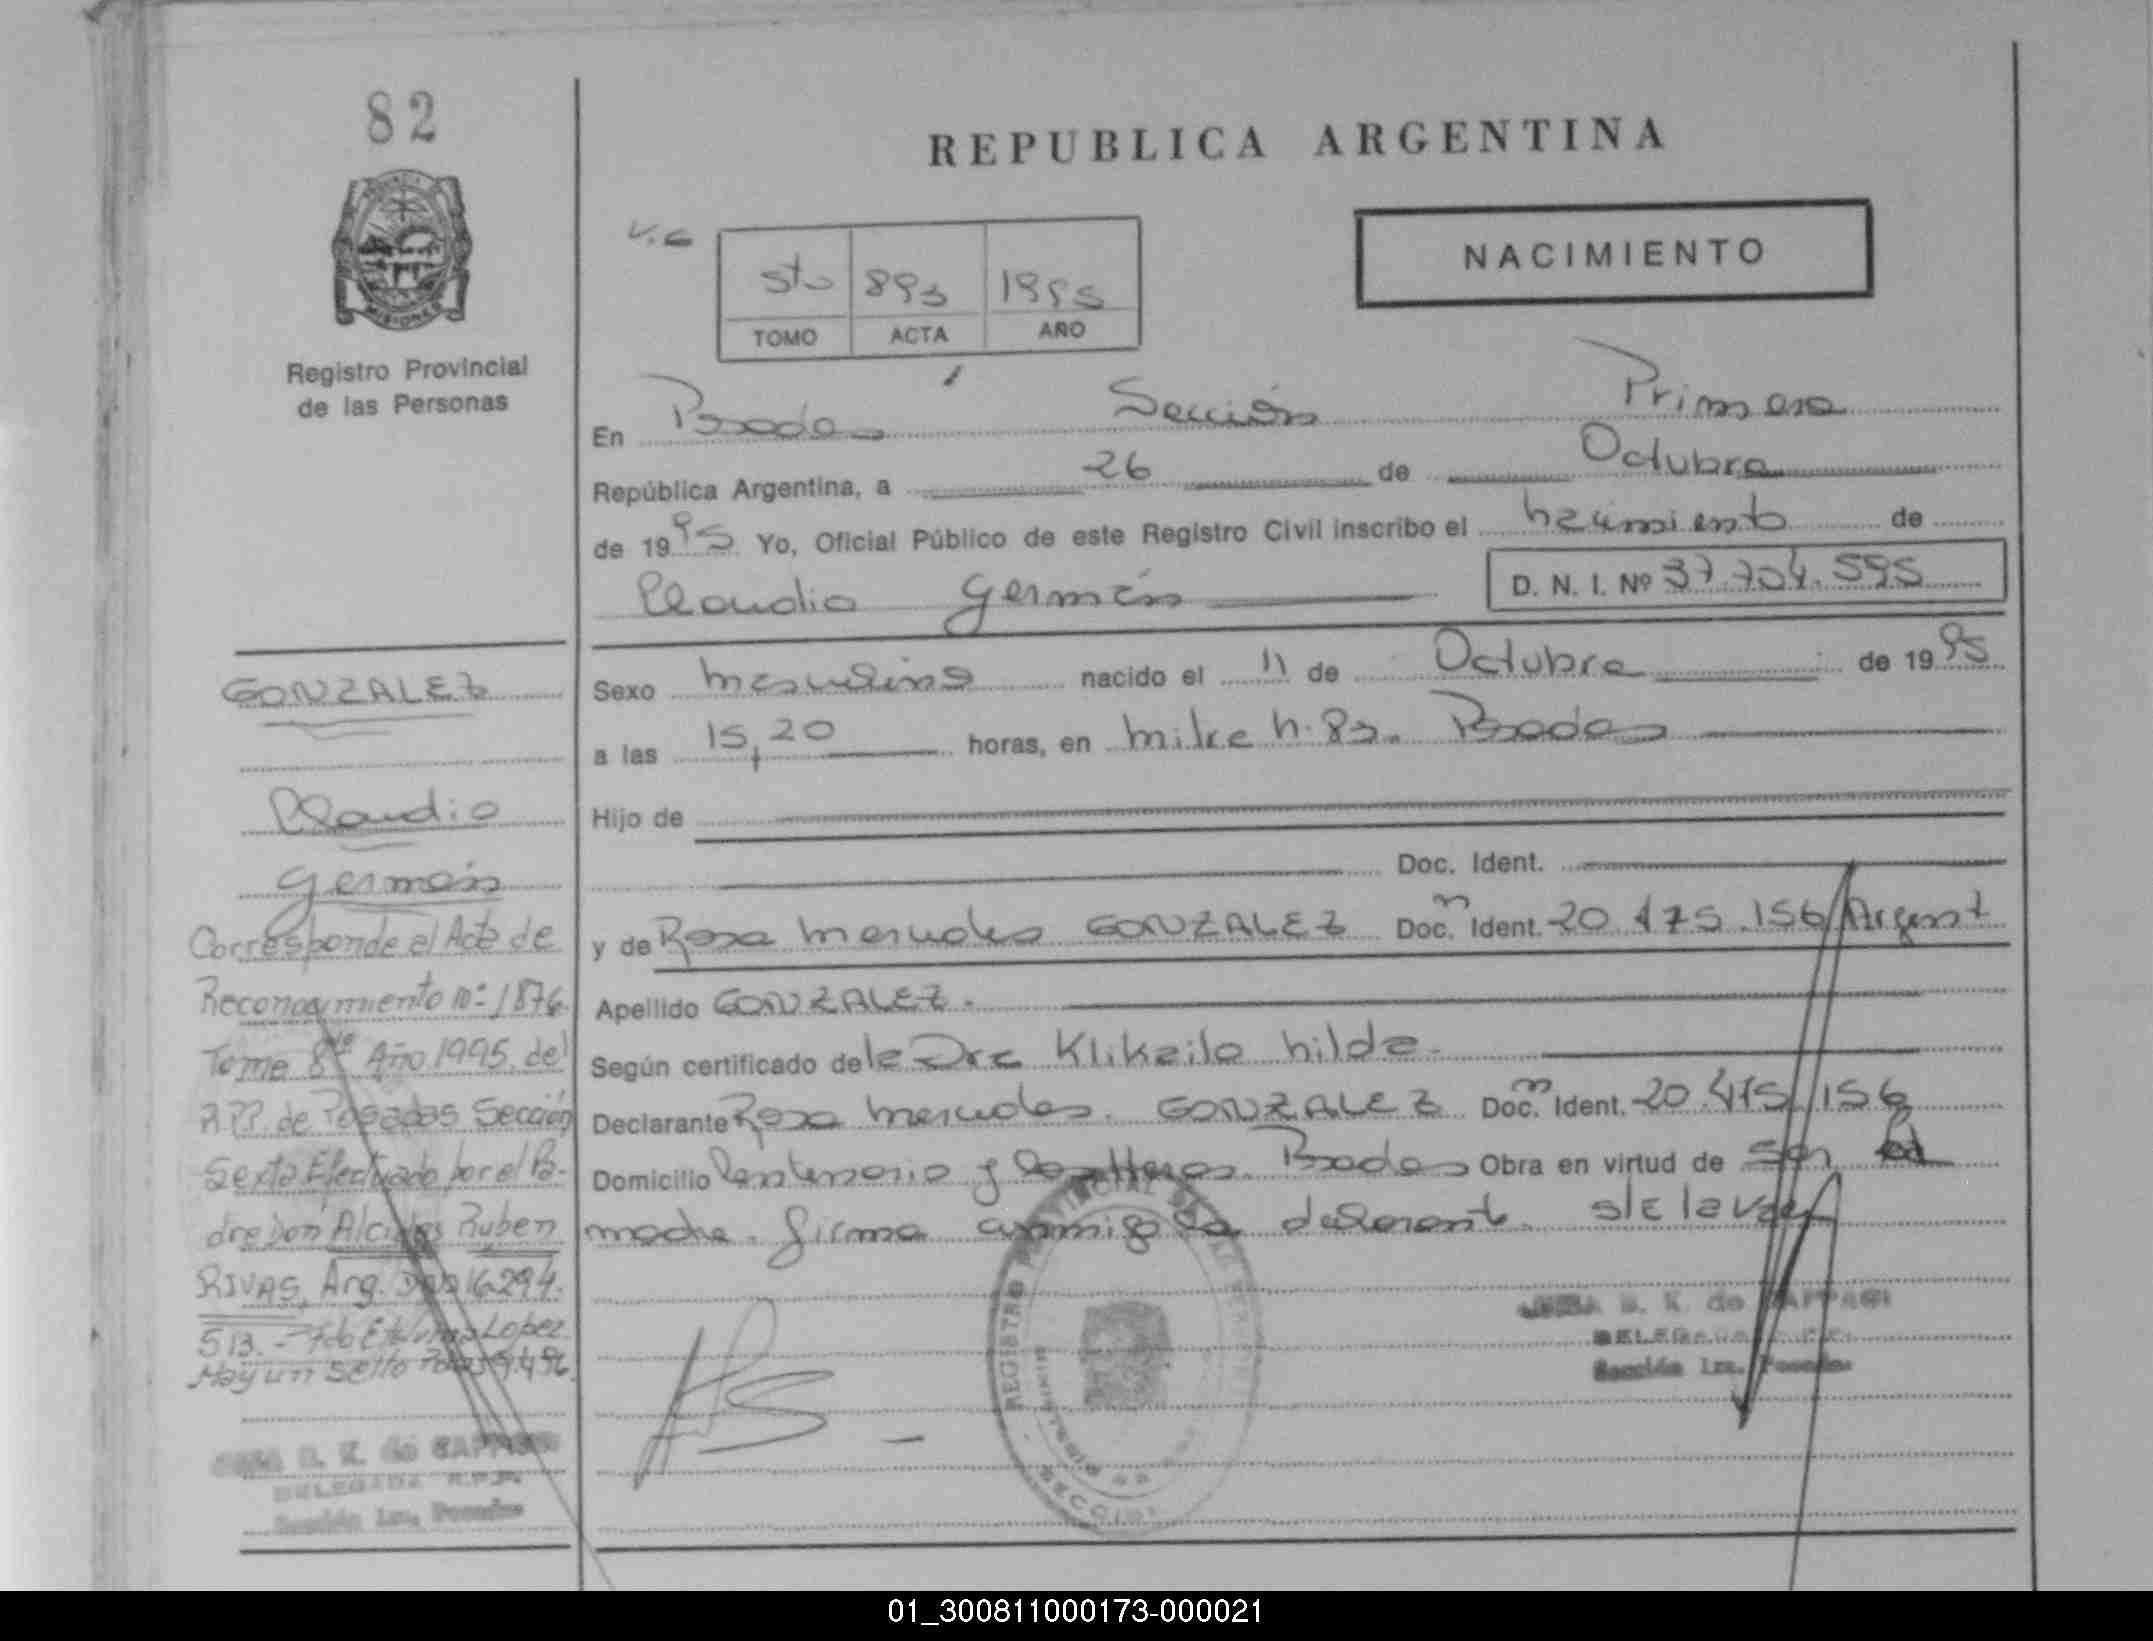 82
REPUBLICA ARGENTINA
NACIMIENTO
PROVINCIA
MISIONES
Registro Provincial
de las Personas
5to 893 1995
TOMO ACTA AÑO
En Posadas Sección Primera
República Argentina, a 26 de Octubre
de 1995 Yo, Oficial Público de este Registro Civil inscribo el nacimiento de
Claudio Germán D. N. I. Nº 37.704.595
Sexo masculino nacido el 11 de Octubre de 1995
a las 15,20 horas, en mitre n. Posadas
Hijo de
Doc. Ident.
y de Rosa Mercedes GONZALEZ Doc. Ident. 20.475.156 Argent
Apellido GONZALEZ.
Según certificado de la Dra Klikailo hilda.
Declarante Rosa Mercedes. GONZALEZ Doc. Ident. 20.475.156
Domicilio Centenario y Posadas Obra en virtud de ser la
madre. firma conmigo la declarante. s/E la
S. K. de
DELEGADA R.P.P.
Sección 1ra. Posadas
GONZALEZ
Claudio
Germán
Corresponde el Acta de
Reconocimiento nº 1876.
Tomo 8vo Año 1995. del
R.P.P. de Posadas Sección
Sexta Efectuado por el Pa-
dre Don Alcides Ruben
RIVAS, Arg. DNI 16.294.
513.- Fdo Lopez.
Hay un sello
S. K. de
DELEGADA R.P.P.
Sección 1ra. Posadas
01_300811000173-000021